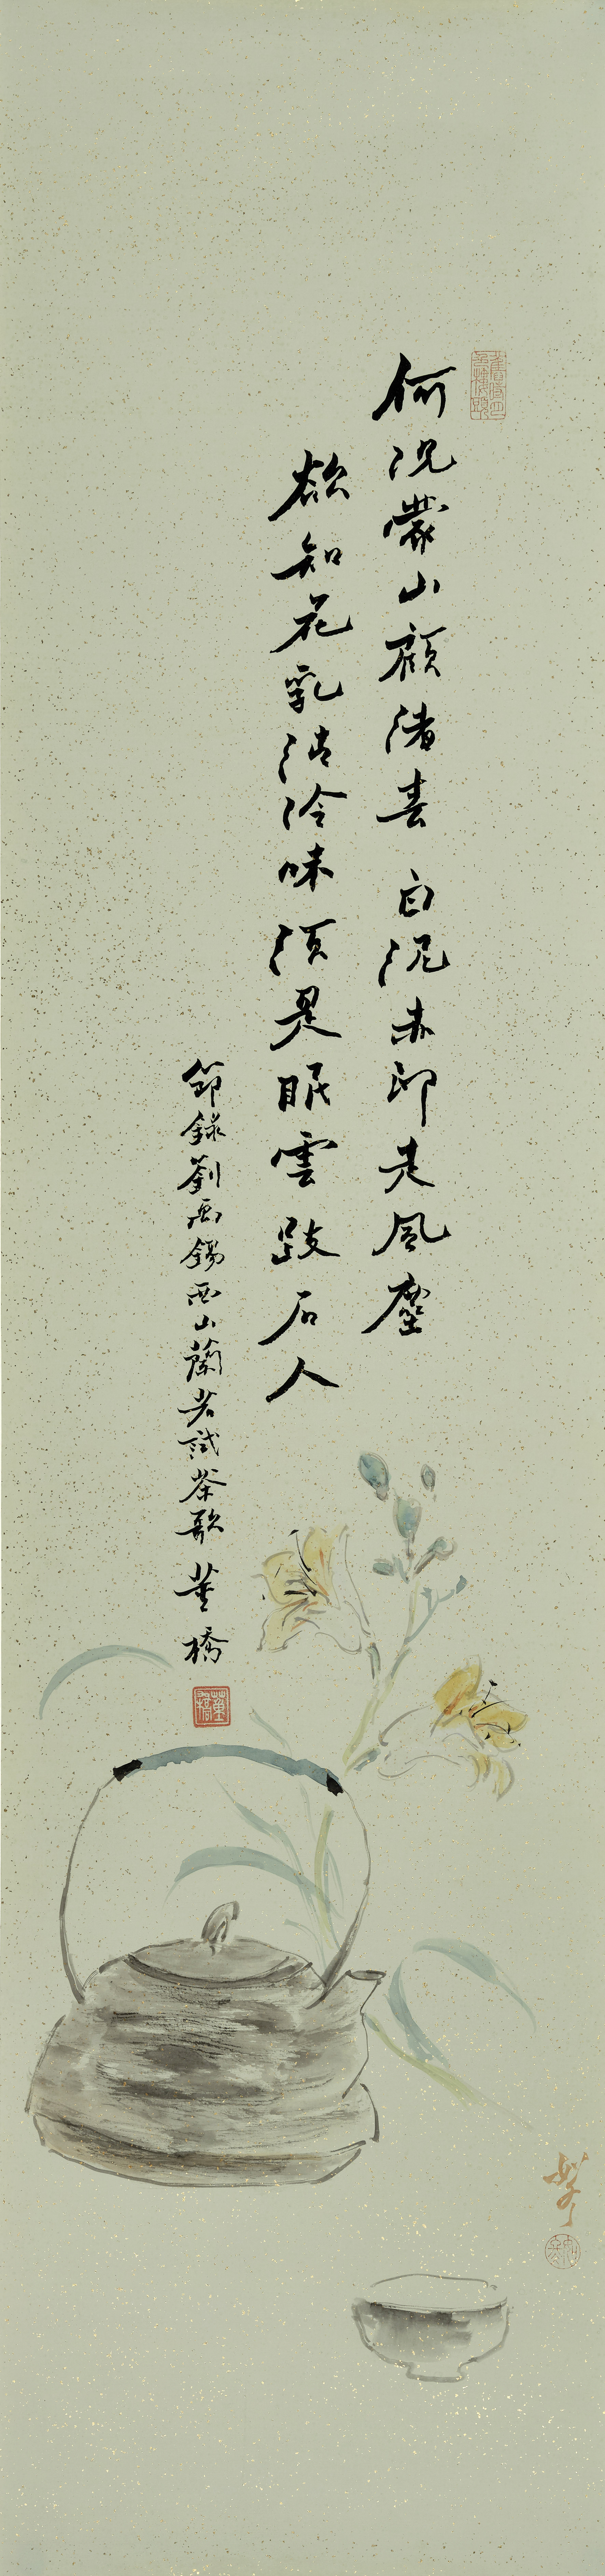 何況蒙山顧渚春 白泥赤印走風塵
欲知花乳清泠味須是眠雲跂石人
節錄劉禹錫西山蘭若試茶歌 董橋
董橋